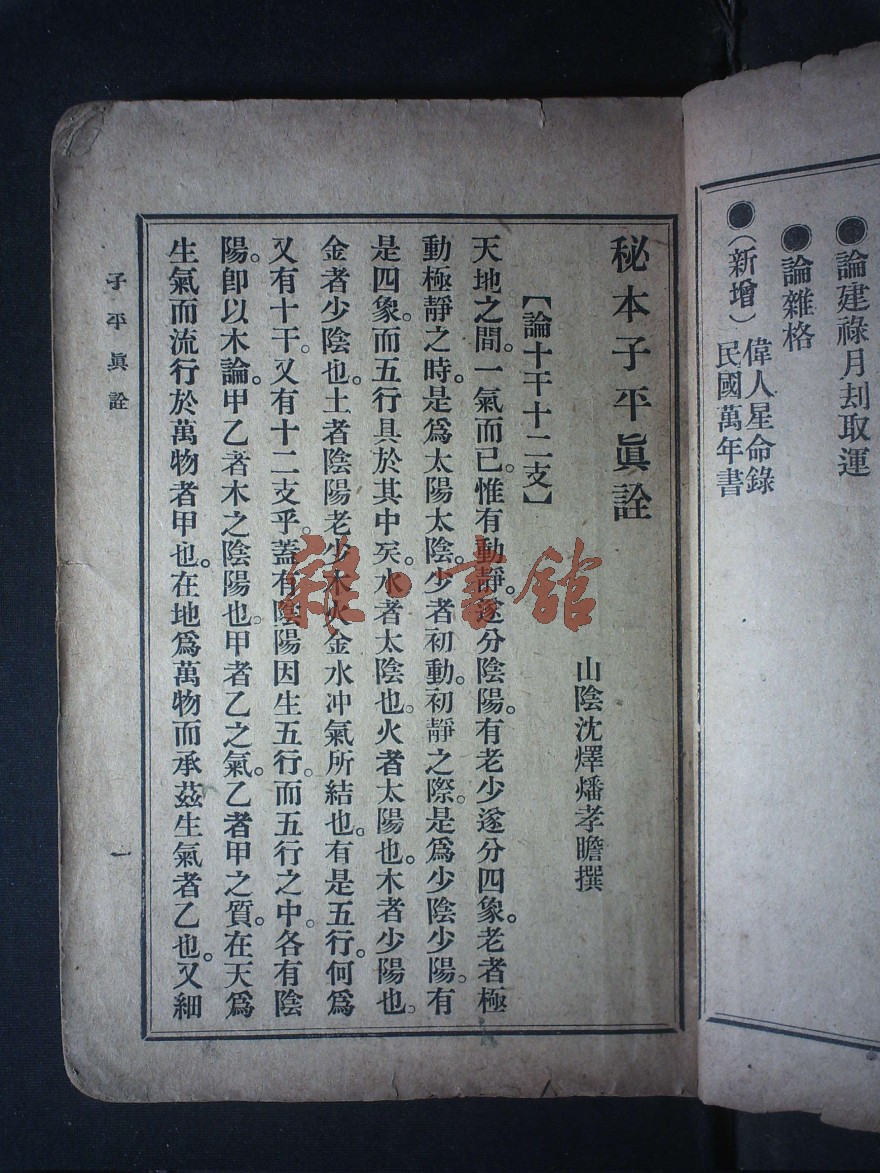 ●論建祿月刦取運
●論雜格
●（新增）偉人星命錄
民國萬年書
秘本子平眞詮
山陰沈燡燔孝瞻撰
【論十干十二支】
天地之間。一氣而已。惟有動靜。遂分陰陽。有老少遂分四象。老者極
動極靜之時。是爲太陽太陰。少者初動。初靜之際。是爲少陰少陽。有
是四象。而五行具於其中矣。水者太陰也。火者太陽也。木者少陽也。
金者少陰也。土者陰陽老少木火金水冲氣所結也。有是五行。何爲
又有十干。又有十二支乎。蓋有陰陽因生五行。而五行之中。各有陰
陽。卽以木論。甲乙者木之陰陽也。甲者乙之氣。乙者甲之質。在天爲
生氣而流行於萬物者甲也。在地爲萬物而承茲生氣者乙也。又細
子平眞詮
一
雜·書館